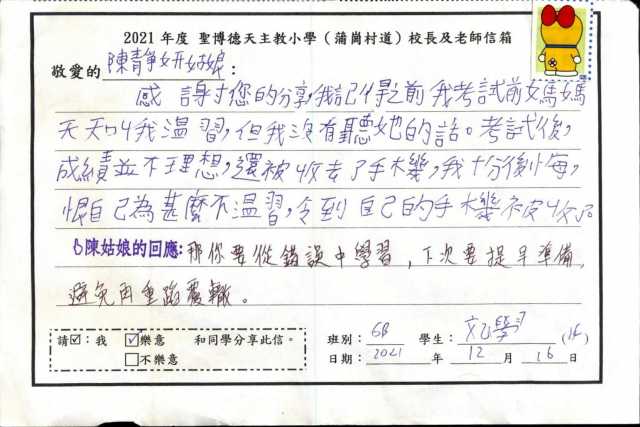 2021 年度 聖博德天主教小學（蒲崗村道）校長及老師信箱
敬愛的陳靜妍姑娘：
感謝您的分享，我記得之前我考試前媽媽
天天叫我溫習，但我沒有聽她的話。考試後，
成績並不理想，還被收去了手機，我十分後悔，
恨自己為甚麼不溫習，令到自己的手機被收。
陳姑娘的回應：那你要從錯誤中學習，下次要提早準備，
避免再重蹈覆轍。
請☑：我 ☑樂意 和同學分享此信。
□不樂意
班別：6B 學生： (16)
日期：2021 年 12 月 16 日